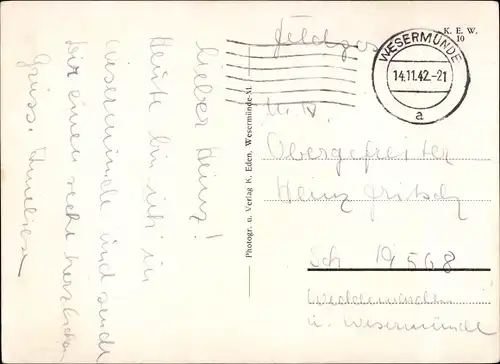 Lieber Heinz!
Heute bin ich in
Wesermünde und sende
Dir einen recht herzlichen
Gruss.
Photogr. u. Verlag K. Eden, Wesermünde-M.
K. E. W.
10
WESERMÜNDE
14.11.42.-21
a
Feldpost
Obergefreiter
Heinz Fritsch
19568
Weddewarden
ü. Wesermünde